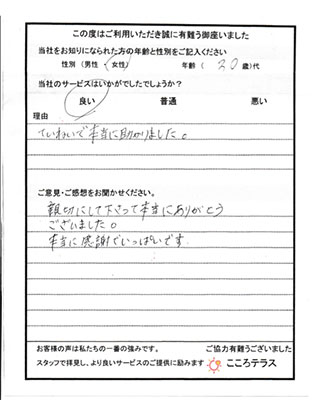 この度はご利用いただき誠に有難う御座いました
当社をお知りになられた方の年齢と性別をご記入ください
性別 (男性 女性) 年齢 ( 20 歳)代
当社のサービスはいかがでしたでしょうか?
良い 普通 悪い
理由
ていねいで本当に助かりました。
ご意見・ご感想をお聞かせください。
親切にして下さって本当にありがとう
ございました。
本当に感謝でいっぱいです
お客様の声は私たちの一番の強みです。 ご協力有難うございました
スタッフで拝見し、より良いサービスのご提供に励みます こころテラス